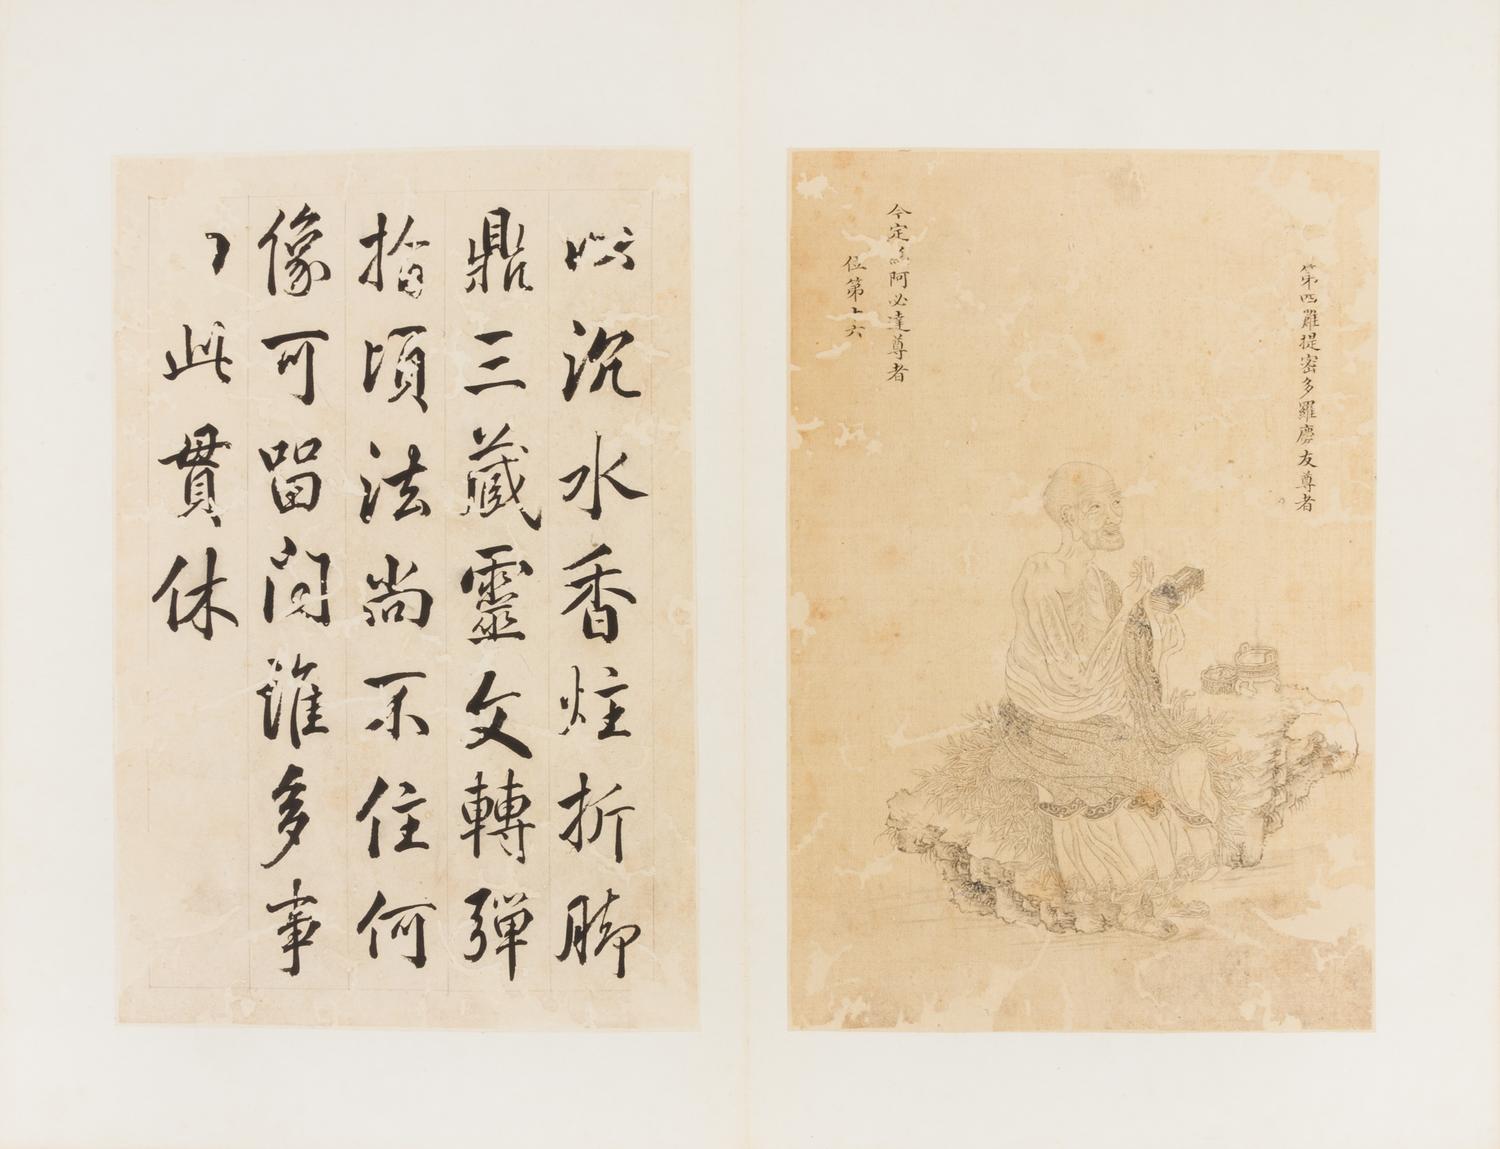 第四難提密多羅慶友尊者
今定阿必達尊者
位第十六
以沉水香炷折脚
鼎三藏靈文轉彈
指頃法尚不住何
像可留問誰多事
此貫休